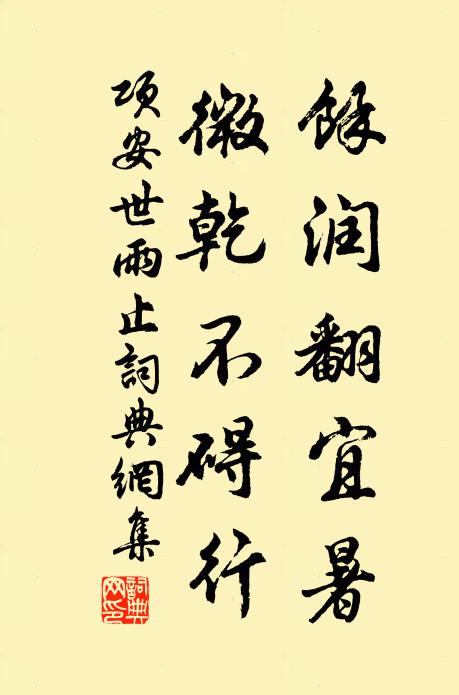 餘润翻宜暑
微乾不碍行
项安世雨止詞典網集
詞典网印